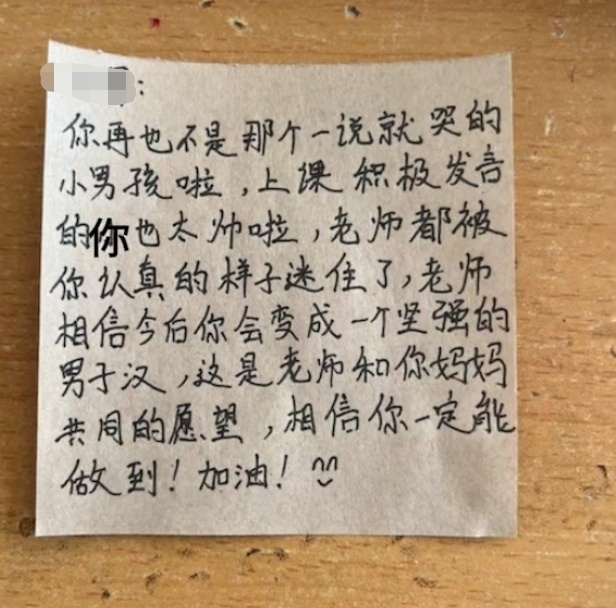 ：
你再也不是那个一说就哭的
小男孩啦，上课积极发言
的你也太帅啦，老师都被
你认真的样子迷住了，老师
相信今后你会变成一个坚强的
男子汉，这是老师和你妈妈
共同的愿望，相信你一定能
做到！加油！